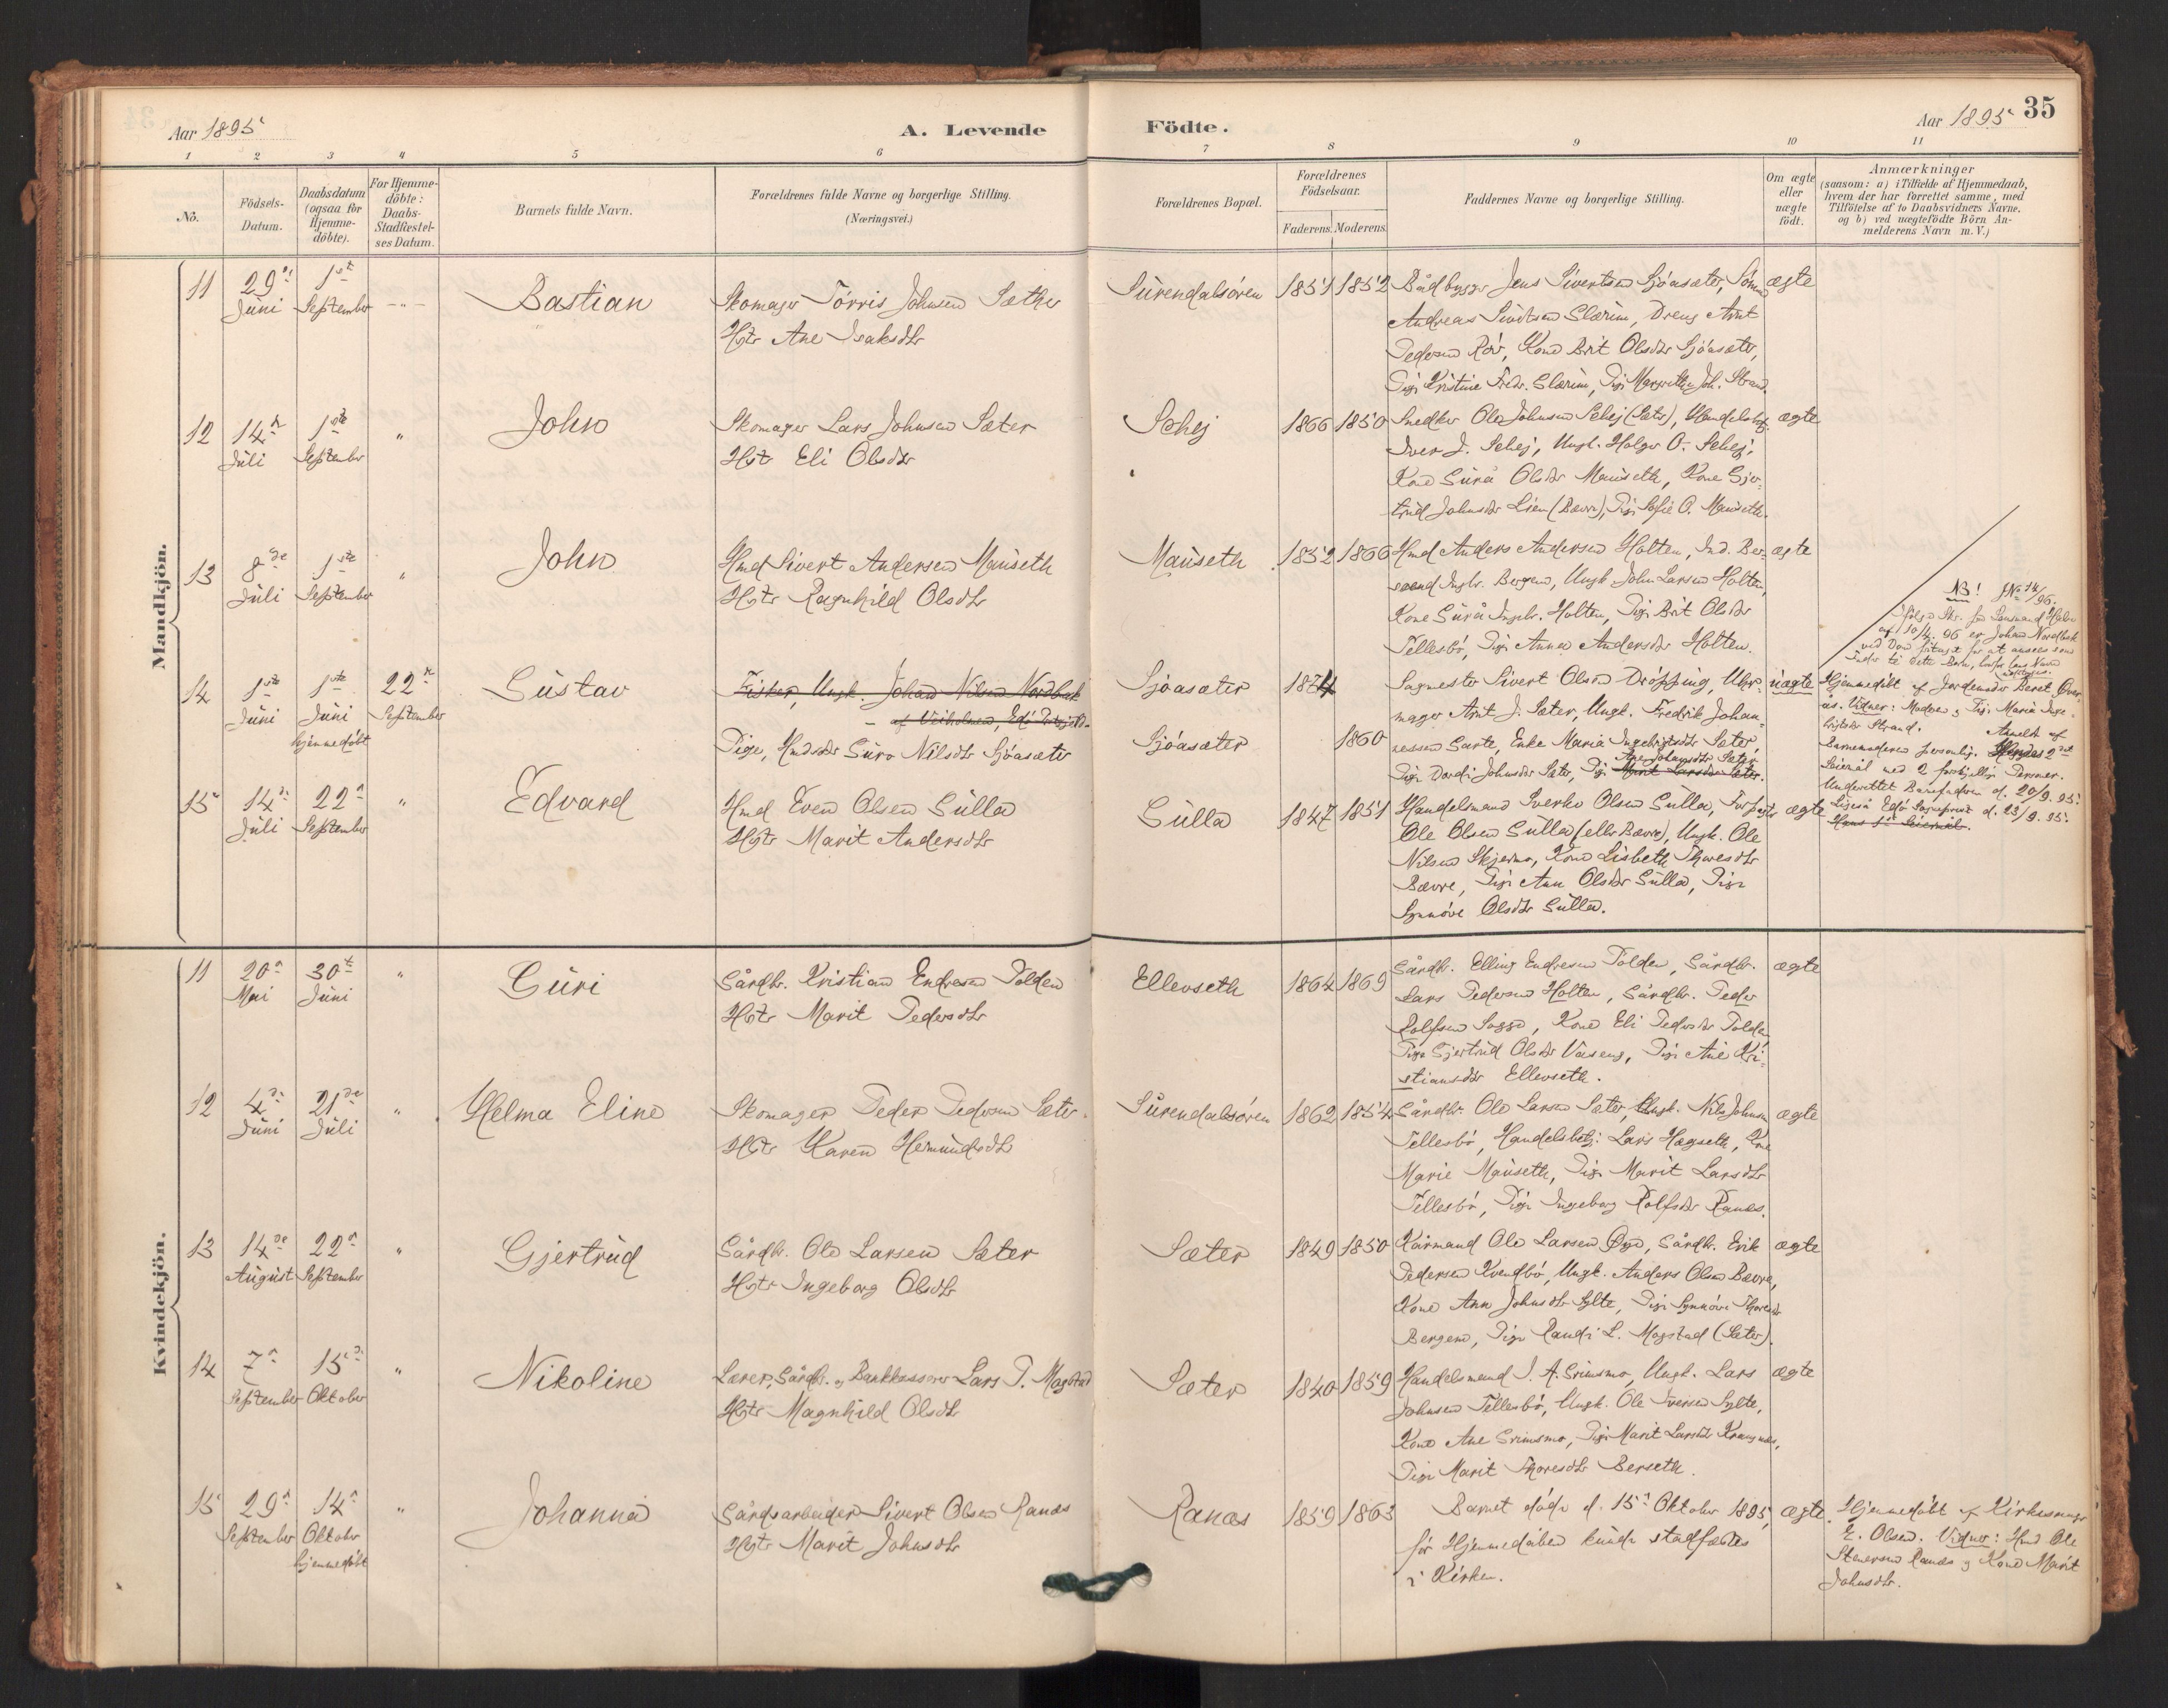 Aar 1895
A. Levende
Födte.
Aar 1895
35
1 2 3 4 5 6 7 8 9 10 11
No.
Födsels-Datum.
Daabsdatum (ogsaa for Hjemme-döbte).
For Hjemme-döbte: Daabs-Stadfæstel-ses Datum.
Barnets fulde Navn.
Forældrenes fulde Navne og borgerlige Stilling.
(Næringsvei.)
Forældrenes Bopæl.
Forældrenes Födselsaar.
Faderens. Moderens.
Faddernes Navne og borgerlige Stilling.
Om ægte eller uægte födt.
Anmærkninger
(saasom: a) i Tilfælde af Hjemmedaab,
hvem der har forrettet samme, med
Tilföielse af to Daabsvidners Navne.
og b) ved uægtefödte Börn An-
melderens Navn m. V.)
Mandkjön.
11 29de Juni 1ste September -"- Bastian
Skomager Törris Johnsen Sæther
Hstr Ane Isaksdtr
Surendalsøren 1851 1852
Bådbygger Jens Sivertsen Sjöasæter,
Andreas Sivertsen Glærum, Dreng Arnt
Pedersen Röv, Kone Brit Olsdtr Sjöasæter,
Pige Kristine Fredr. Glærum, Pige Margrethe Joh. Strand.
ægte
12 14de Juli 1ste September " John
Skomager Lars Johnsen Sæter
Hstr Eli Olsdtr
Schej 1866 1850
Snedker Ole Johnsen Schej (Sæter), Handelsbetj.
Iver J. Schej, Ungk. Holger O. Schej,
Kone Gurå Olsdtr Mauseth, Kone Gjer-
trud Johnsdtr Lien (Bævre), Pige Sofie O. Mauseth.
ægte
13 8de Juli 1ste September " John
Hmd Sivert Andersen Mauseth
Hstr Ragnhild Olsdtr
Mauseth 1852 1866
Hmd Anders Andersen Holten, Ind. Ber-
Ingbr. Bergem, Ungk John Larsen Holten,
Kone Gurå Ingebr. Holten, Pige Brit Olsdtr
Tellesbö, Pige Anna Andersdtr Holten.
ægte
14 1ste Juni 1ste Juni hjemmedöbt 22de September Gustav
Fisker, Ungk. Johan Nilsen Nordbak
af Veiholmen, Edö Prestegjeld.
Pige, Hmdsdtr Guro Nilsdtr Sjöasæter
Sjöasæter 1874
Sjöasæter 1860
Sagmester Sivert Olsen Dröpping, Uhr-
mager Arnt J. Sæter, Ungk. Fredrik Johan-
nessen Garte, Enke Maria Ingebrigtsdtr Sæter,
Ane Johansdtr Sæter
Pige Dordi Johnsdtr Sæter, Pige Marit Larsdtr Sæter.
uægte
NB! JNo 14/96.
Ifölge Skr. fra Lensmand Holm
af 10/4. 96 er Johan Nordbak
ved Dom frifunden for at ansees som
Fader til dette Barn, hvorfor hans Navn
udslettes.
Hjemmedöbt af Jordemoder Beret Över-
ås. Vidner: Moderen og Pige Maria Inge-
brigtsdtr Strand. Anmeldt af
Barnemoderen personlig. Hendes 2det
Leiermål med 2 forskjellige Personer.
Underrettet Barnefaderen d. 20/9. 95.
Ligeså Edö Sogneprest d. 23/9. 95.
Hans 1ste Leiermål.
15 14de Juli 22de September " Edvard
Hmd Even Olsen Sulla
Hstr Marit Andersdtr
Sulla 1847 1851
Handelsmand Sverke Olsen Sulla, Forpagter
Ole Olsen Sulla (eller Bævre), Ungk. Ole
Nilsen Skjermo, Kone Lisbeth Thoresdtr
Bævre, Pige Ann Olsdtr Sulla, Pige
Synnöve Olsdtr Sulla.
ægte
Kvindekjön.
11 20de Mai 30te Juni " Guri
Gårdbr. Kristian Endresen Polden
Hstr Marit Pedersdtr
Ellevseth 1864 1869
Gårdbr. Elling Endresen Polden, Gårdbr.
Lars Pedersen Holten, Gårdbr. Peder
Rolfsen Sogge, Kone Eli Pedersdtr Polden,
Pige Gjertrud Olsdtr Vaseng, Pige Ane Kri-
stiansdtr Ellevseth.
ægte
12 4de Juni 21de Juli " Helma Eline
Skomager Peder Pedersen Sæter.
Hstr Karen Hemundsdtr
Surendalsøren 1862 1854
Gårdbr. Ole Larsen Sæter, Ungk. Nils Johnsen
Tellesbö, Handelsbetj. Lars Hagseth, Kone
Marie Mauseth, Pige Marit Larsdtr
Tellesbö, Pige Ingeborg Rolfsdtr Ranæs.
ægte
13 14de August 22de September " Gjertrud
Gårdbr. Ole Larsen Sæter
Hstr Ingeborg Olsdtr
Sæter 1849 1850
Kårmand Ole Larsen Øye, Gårdbr. Erik
Pedersen Kvendbö, Ungk. Anders Olsen Bævre,
Kone Ann Johnsdtr Sylte, Pige Synnöve Thoresdtr
Bergem, Pige Randi L. Mogstad (Sæter).
ægte
14 7de September 15de Oktober " Nikoline
Lærer, Gårdbr. og Bankkasserer Lars P. Mogstad
Hstr Magnhild Olsdtr
Sæter 1840 1859
Handelsmand J. A. Grimsmo, Ungk. Lars
Johnsen Tellesbö, Ungk. Ole Iversen Sylte,
Kone Ane Grimsmo, Pige Marit Larsdtr Krangnæs,
Pige Marit Thoresdtr Berseth.
ægte
15 29de September 14de Oktober hjemmedöbt " Johanna
Gårdsarbeider Sivert Olsen Ranæs
Hstr Marit Johnsdtr
Ranæs 1859 1863
Barnet döde d. 15de Oktober 1895,
för Hjemmedåben kunde stadfæstes
i Kirken.
ægte.
Hjemmedöbt af Kirkesanger
E. Olsen. Vidner: Hmd Ole
Stenersen Ranæs og Kone Marit
Johnsdtr.